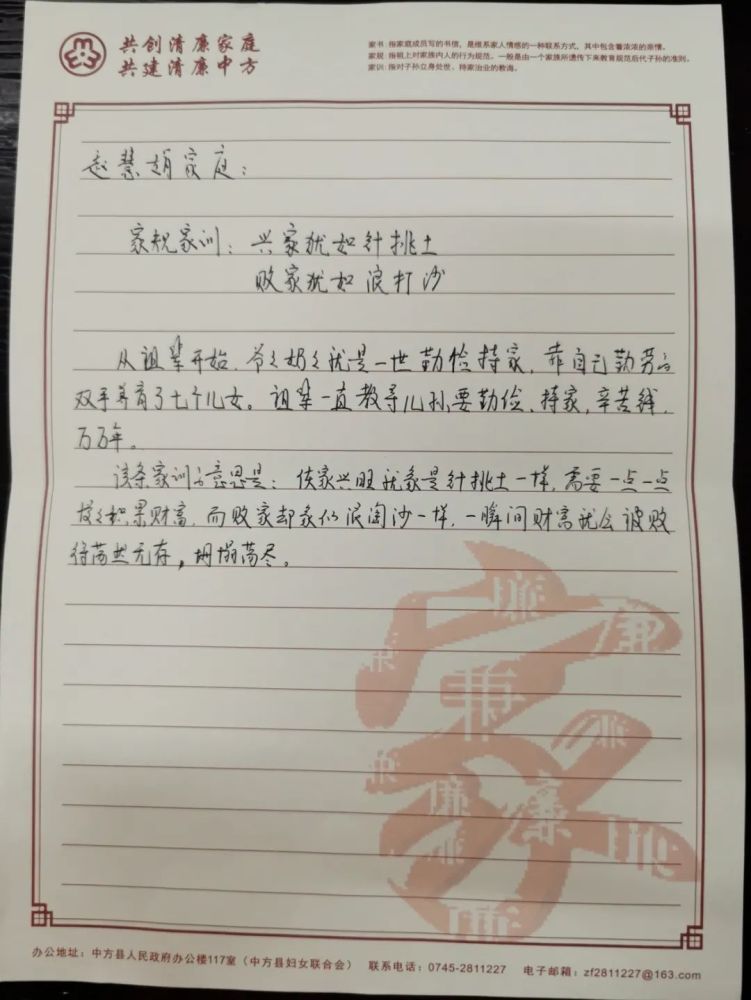 共创清廉家庭
共建清廉中方
家书：指家庭成员写的书信，是维系家人情感的一种联系方式，其中包含着浓浓的亲情。
家规：指祖上对家族内人的行为规范，一般是由一个家族所遗传下来教育规范后代子孙的准则。
家训：指对子孙立身处世、持家治业的教诲。
赵慧娟家庭：
家规家训：兴家犹如针挑土
败家犹如浪打沙
从祖辈开始，爷々奶々就是一世勤俭持家，靠自己勤劳的
双手养育了七个儿女。祖辈一直教导儿孙要勤俭，持家，辛苦钱，
万万年。
该条家训的意思是：使家兴旺就象是针挑土一样，需要一点一点
慢々积累财富，而败家却象似浪淘沙一样，一瞬间财富就会被败
得荡然无存，坍塌荡尽。
办公地址：中方县人民政府办公楼117室（中方县妇女联合会） 联系电话：0745-2811227 电子邮箱：zf2811227@163.com